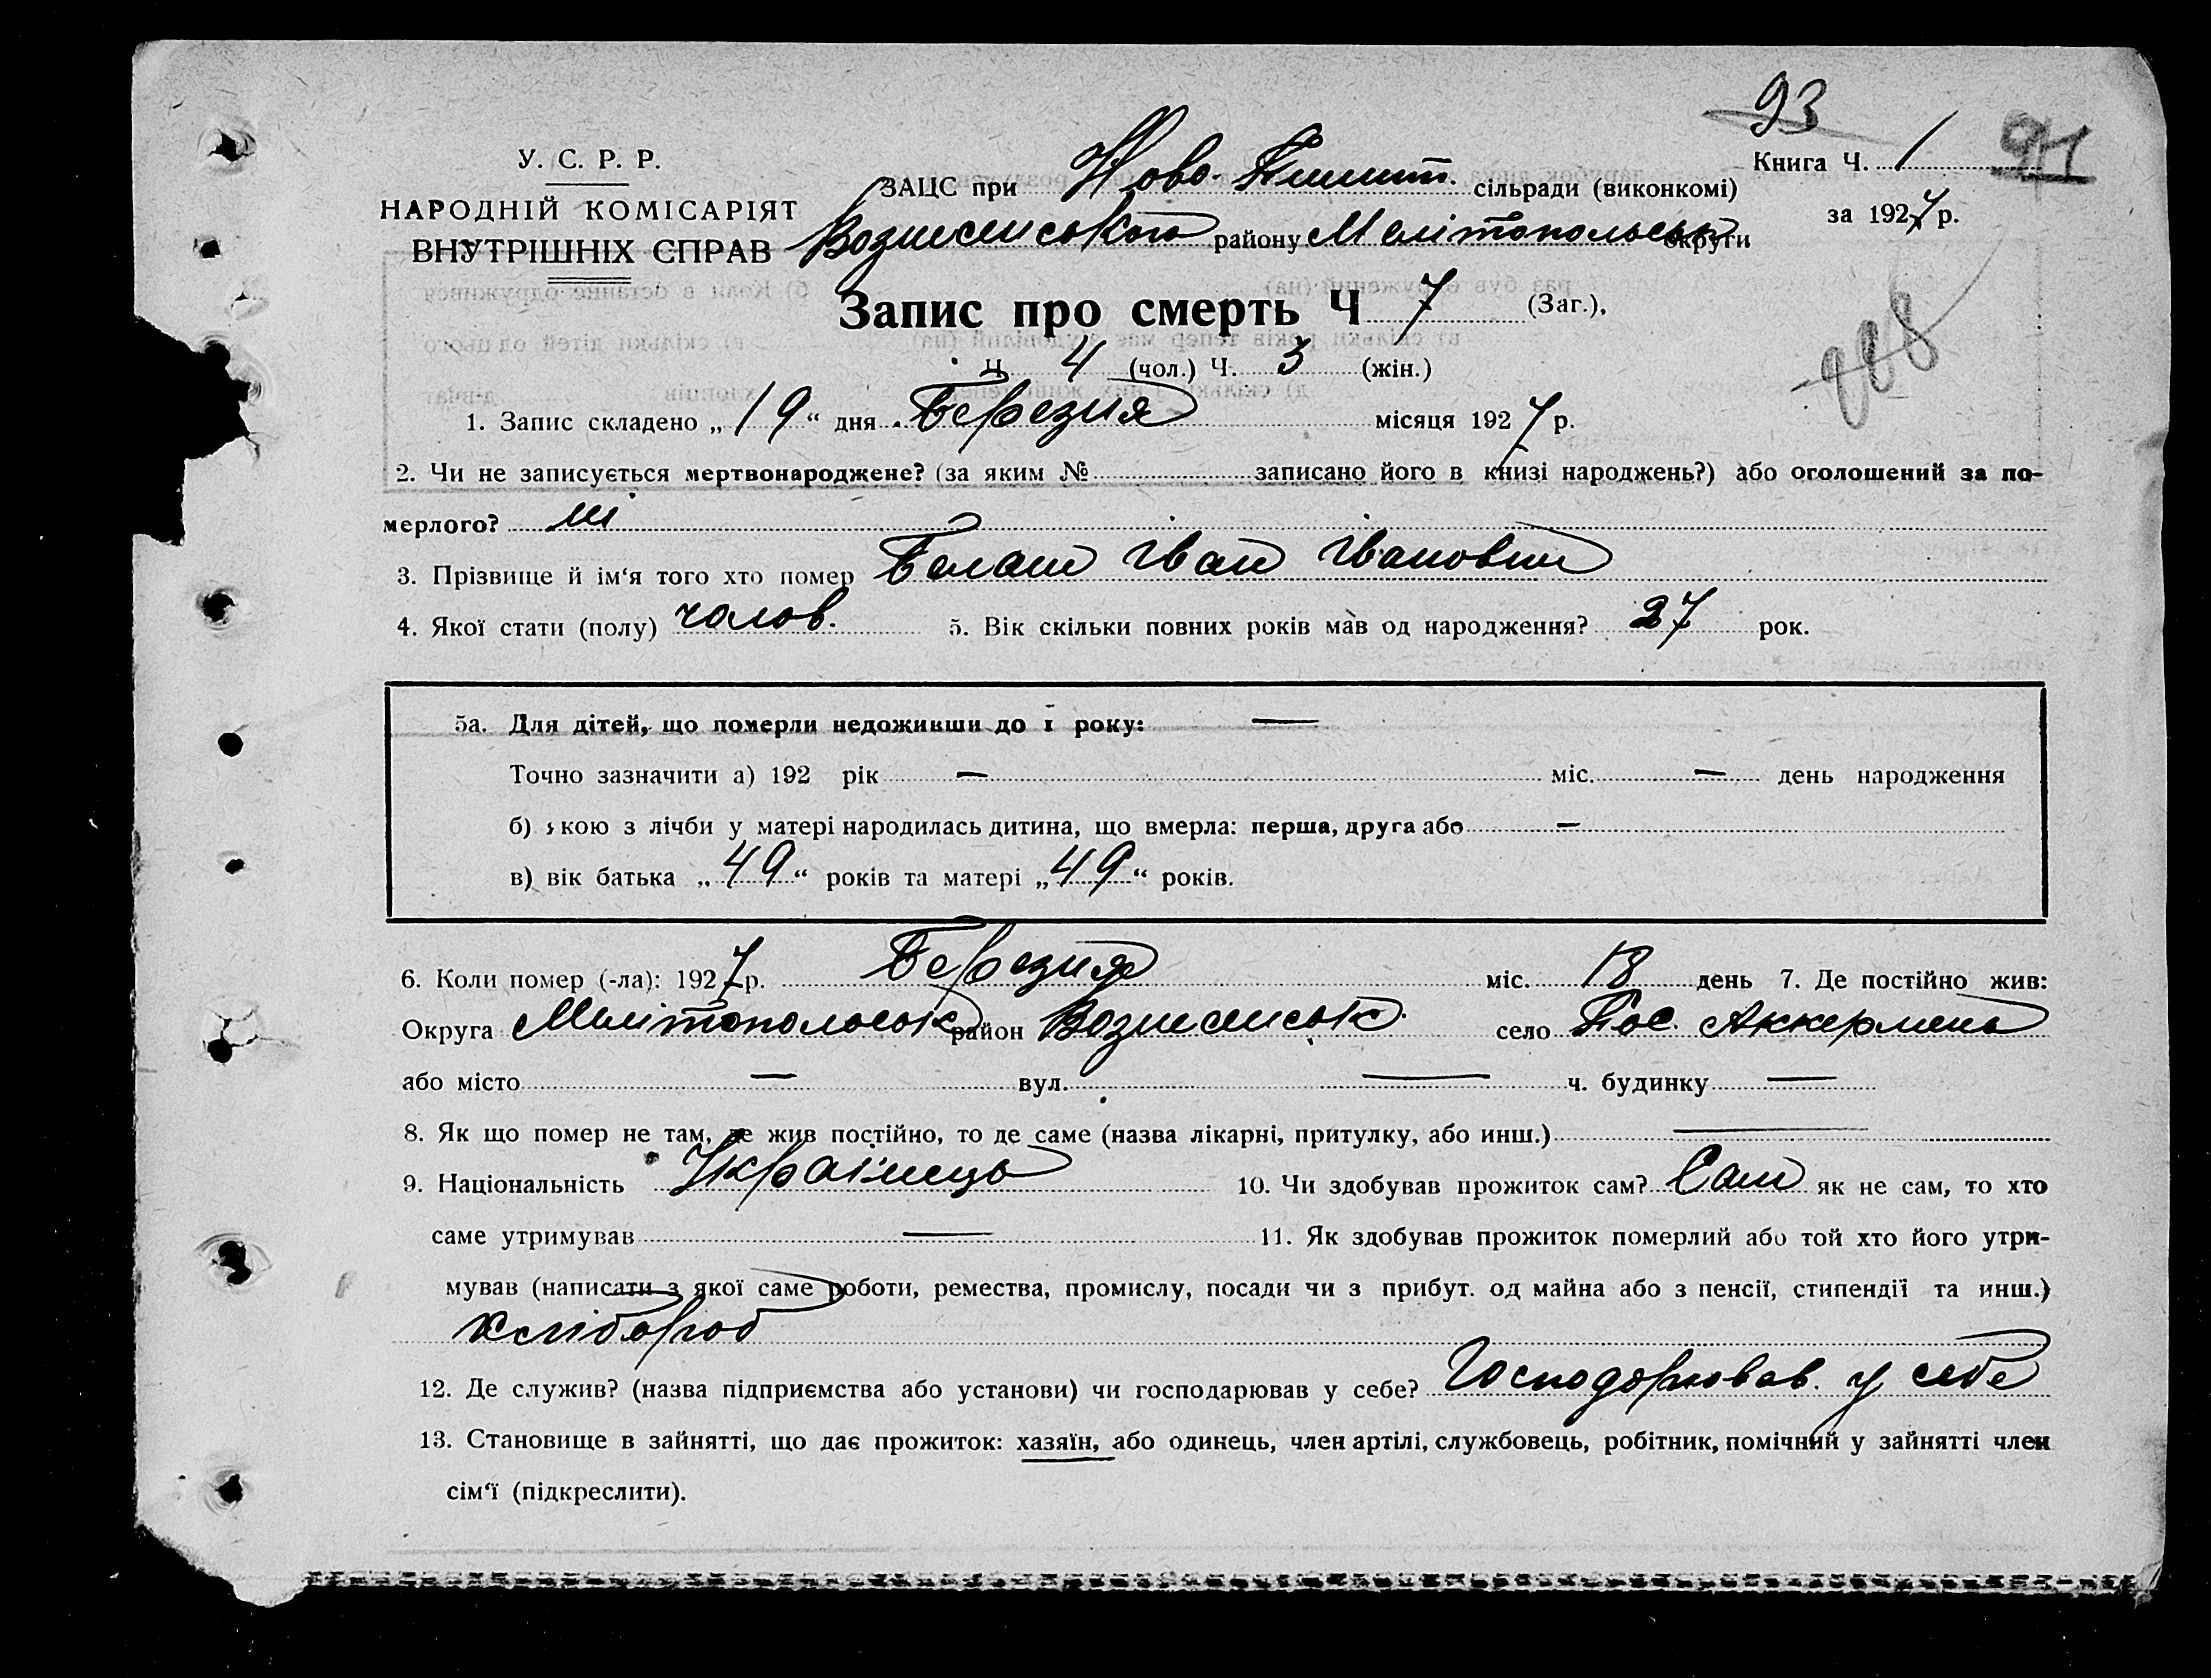 93
Книга Ч. 1 91
У. С. Р. Р.
ЗАЦС при Ново-Пилип. сільради (виконкомі)
НАРОДНІЙ КОМІСАРІЯТ
за 1927 р.
ВНУТРІШНІХ СПРАВ
Вознесенського району Мелітопольськ округи
Запис про смерть Ч 7 (Заг.),
Ч 4 (чол.) Ч. 3 (жін.)
1. Запис складено „19“ дня Березня місяця 1927 р.
2. Чи не записується мертвонароджене? (за яким № записано його в книзі народжень?) або оголошений за по-
мерлого? ні
3. Прізвище й ім‘я того хто помер Балаш Іван Іванович
4. Якої стати (полу) чолов. 5. Вік скільки повних років мав од народження? 27 рок.
5а. Для дітей, що померли недоживши до 1 року: —
Точно зазначити а) 192 рік — міс. — день народження
б) якою з лічби у матері народилась дитина, що вмерла: перша, друга або —
в) вік батька „49“ років та матері „49“ років.
6. Коли помер (-ла): 1927 р. Березня міс. 18 день 7. Де постійно жив:
Округа Мелітопольськ район Вознесенськ. село Пос. Аккермень
або місто — вул. — ч. будинку —
8. Як що помер не там, де жив постійно, то де саме (назва лікарні, притулку, або инш.) —
9. Національність Українець 10. Чи здобував прожиток сам? Сам як не сам, то хто
саме утримував — 11. Як здобував прожиток померлий або той хто його утри-
мував (написати з якої саме роботи, ремества, промислу, посади чи з прибут. од майна або з пенсії, стипендії та инш.)
хлібороб
12. Де служив? (назва підприємства або установи) чи господарював у себе? Господорював. у себе
13. Становище в зайнятті, що дає прожиток: хазяїн, або одинець, член артілі, службовець, робітник, помічний у зайнятті член
сім‘ї (підкреслити).